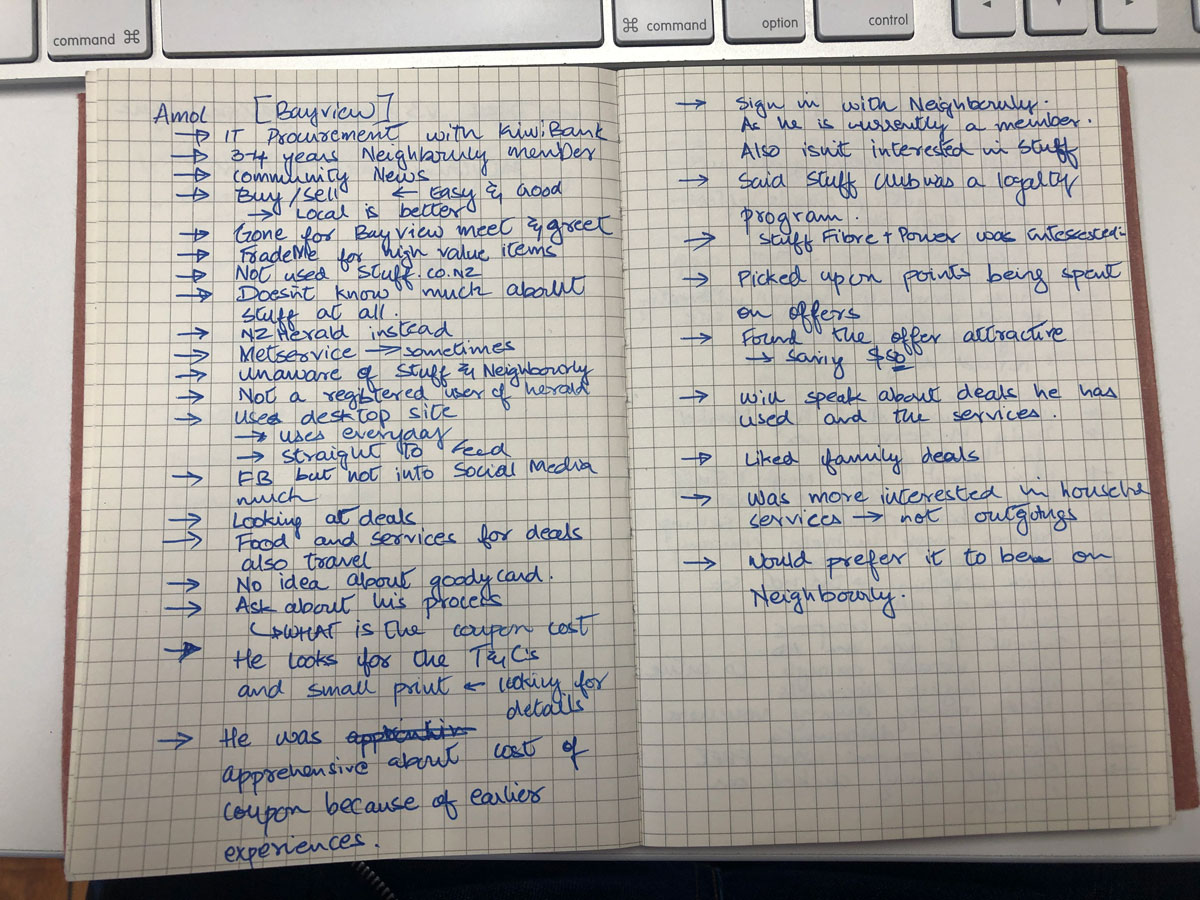 command ⌘
⌘ command
option
control
Amol [Bayview]
→ IT Procurement with KiwiBank
→ 3-4 years Neighbourly member
→ Community News
→ Buy/sell ← Easy & Good
→ Local is better
→ Gone for Bayview meet & greet
→ TradeMe for high value items
→ Not used Stuff.co.nz
→ Doesn't know much about
stuff at all.
→ NZ Herald instead
→ Metservice → sometimes
→ Unaware of Stuff & Neighbourly
→ Not a registered user of herald
→ Uses desktop site
→ uses everyday
→ straight to feed
→ FB but not into Social Media
much
→ Looking at deals
→ Food and services for deals
also travel
→ No idea about goodycard.
→ Ask about his process
↳ WHAT is the coupon cost
→ He looks for the T&C's
and small print ← looking for
details
→ He was
apprehensive about cost of
coupon because of earlier
experiences.
→ Sign in with Neighbourly.
As he is currently a member.
Also isn't interested in Stuff
→ Said Stuff club was a loyalty
program.
→ Stuff Fibre + Power was
→ Picked upon points being spent
on offers
→ Found the offer attractive
→ saving $50
→ Will speak about deals he has
used and the services.
→ Liked family deals
→ Was more interested in
services → not outgoings
→ Would prefer it to be on
Neighbourly.